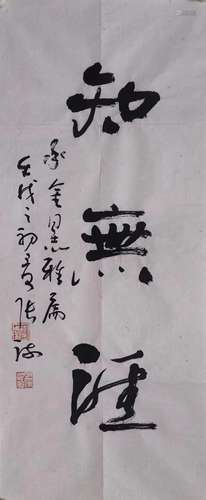 知無涯
承金同志雅属
壬戌之初夏張